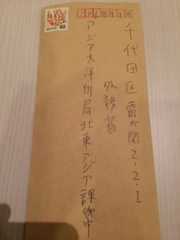 千代田区霞が関2-2-1
外務省
アジア大洋州局北東アジア課御中